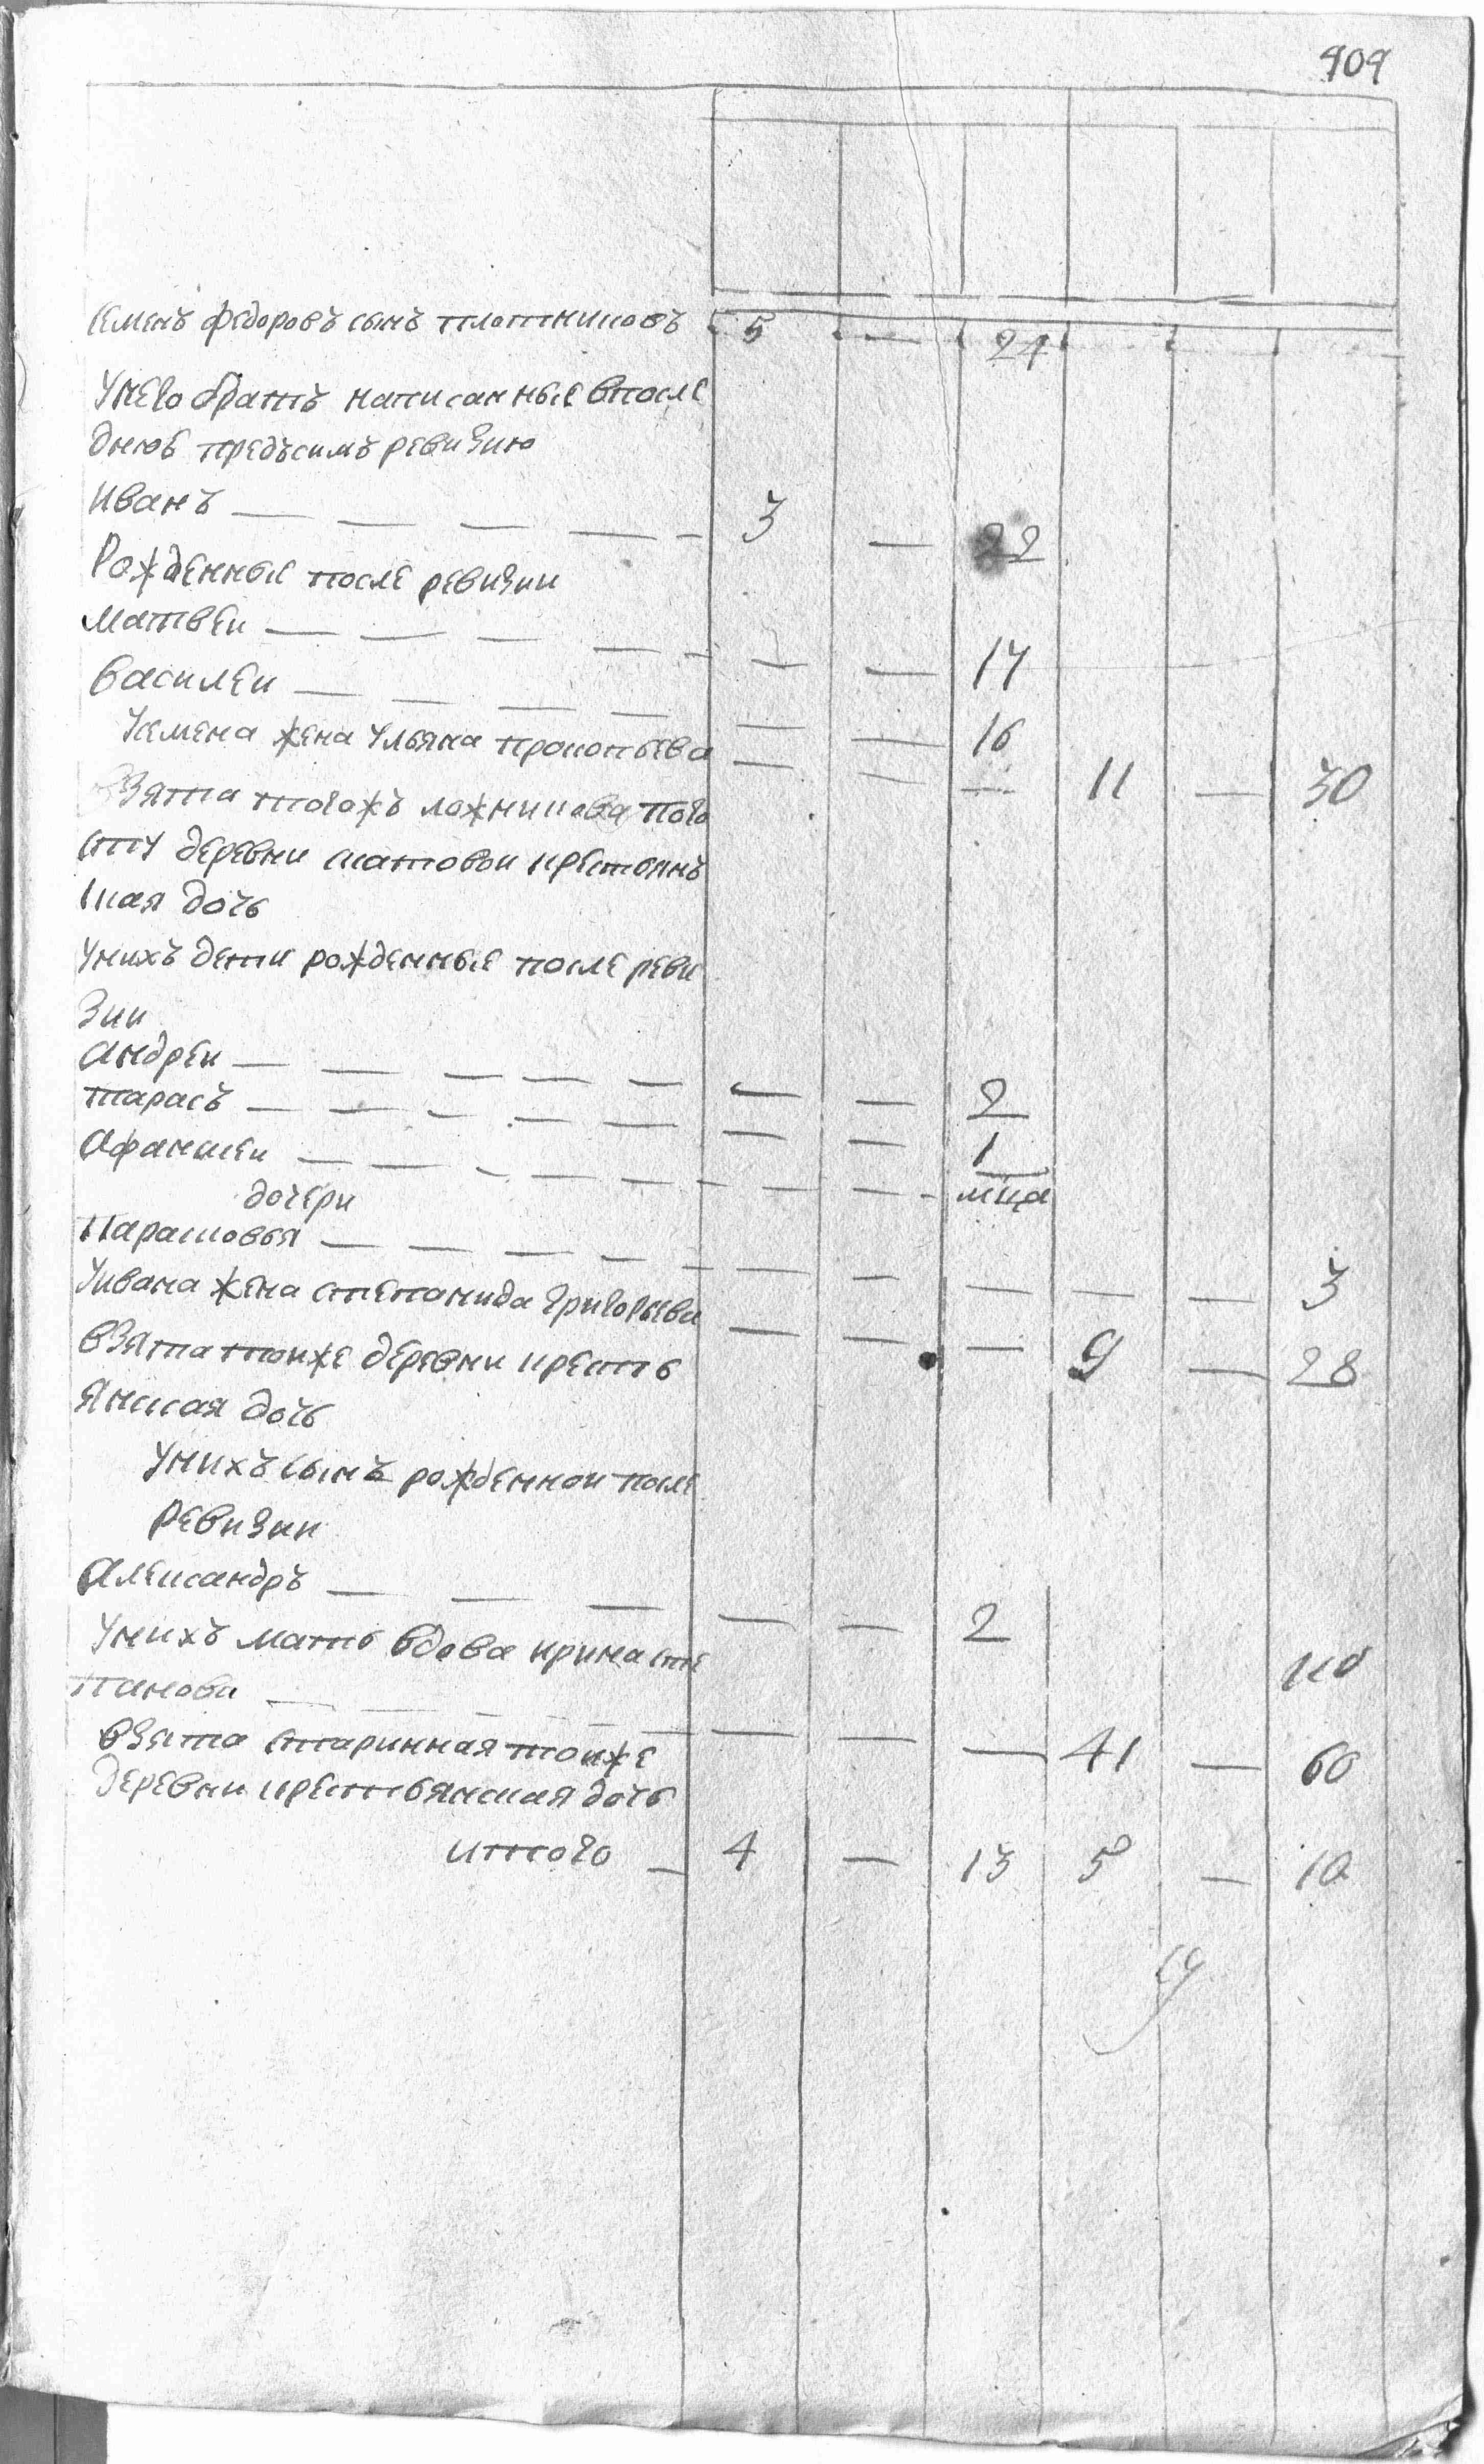 909
Семенъ федоровъ сынъ плотниковъ 5 — 24
Унего братъ написанные впосле
днюю предъсимъ ревизию
Иванъ — — — — — 3 — 22
Рожденные после ревизии
Матвеи — — — — — — — 17
Василеи — — — — — — 16
Усемена жена Ульяна прокопьева — — — 11 — 30
Взята тогожъ пого
сту деревни крестьянъ
ская дочь
Унихъ дети рожденные после реви
зии
Андреи — — — — — — — 2
Тарасъ — — — — — — — 1
Афанасеи — — — — — — — мца
дочери
Парасковья — — — — — — — — — — 3
Уивана жена степанида григорьева — — — 9 — 28
взята тоиже деревни кресть
янская дочь
Унихъ сынъ рожденнои после
ревизии
Александръ — — — — — 2
Унихъ мать вдова ирина сте
панова — — — — — — — — 41 — 60
взята старинная тоиже
деревни крестьянская дочь
итого — 4 — 13 5 — 10